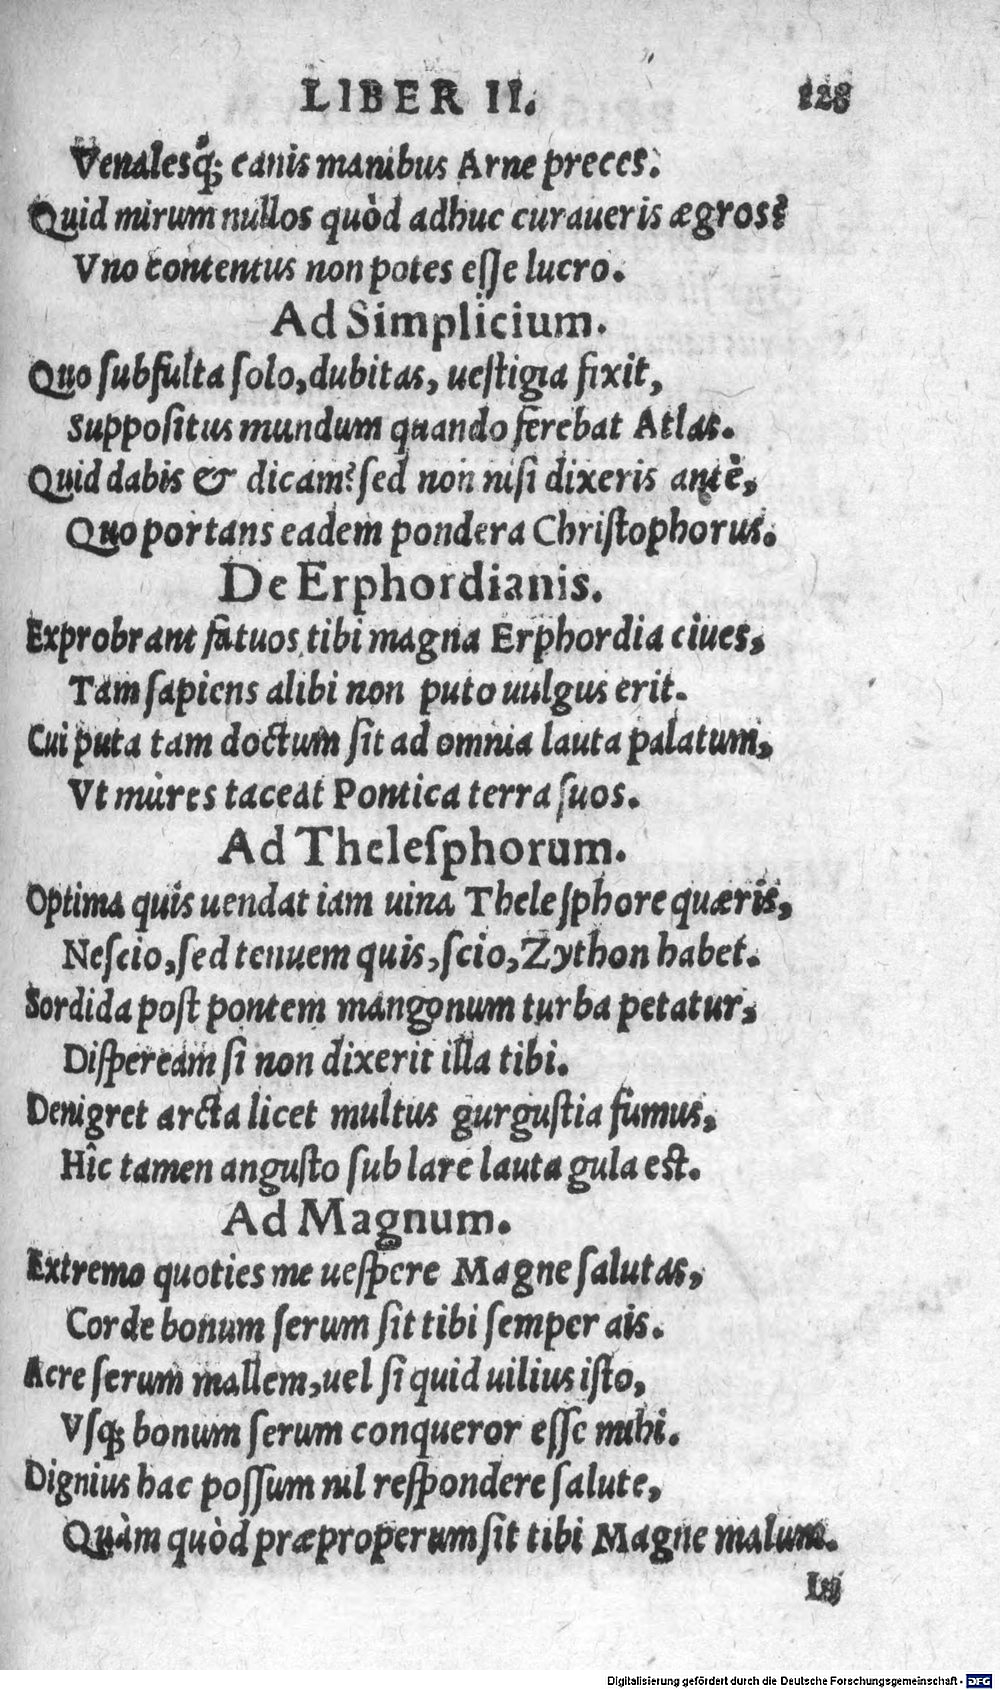 LIBER II. 128
Venalesq́; canis manibus Arne preces.
Quid mirum nullos quòd adhuc curaueris ægros?
Vno contentus non potes eſſe lucro.
Ad Simplicium.
Quo ſubfulta ſolo, dubitas, ueſtigia fixit,
Suppoſitus mundum quando ferebat Atlas.
Quid dabis & dicam? ſed non niſi dixeris antè,
Quo portans eadem pondera Chriſtophorus.
De Erphordianis.
Exprobrant fatuos tibi magna Erphordia ciues,
Tam ſapiens alibi non puto uulgus erit.
Cui puta tam doctum ſit ad omnia lauta palatum,
Vt mùres taceat Pontica terra ſuos.
Ad Theleſphorum.
Optima quis uendat iam uina Theleſphore quæris,
Neſcio, ſed tenuem quis, ſcio, Zython habet.
Sordida poſt pontem mangonum turba petatur,
Diſpeream ſi non dixerit illa tibi.
Denigret arcta licet multus gurguſtia fumus,
Hîc tamen anguſto ſub lare lauta gula eſt.
Ad Magnum.
Extremo quoties me ueſpere Magne ſalutas,
Corde bonum ſerum ſit tibi ſemper ais.
Acre ſerum mallem, uel ſi quid uilius iſto,
Vſq; bonum ſerum conqueror eſſe mihi.
Dignius hac poſſum nil reſpondere ſalute,
Quàm quòd præproperum ſit tibi Magne malum.
L ij
Digitalisierung gefördert durch die Deutsche Forschungsgemeinschaft - DFG